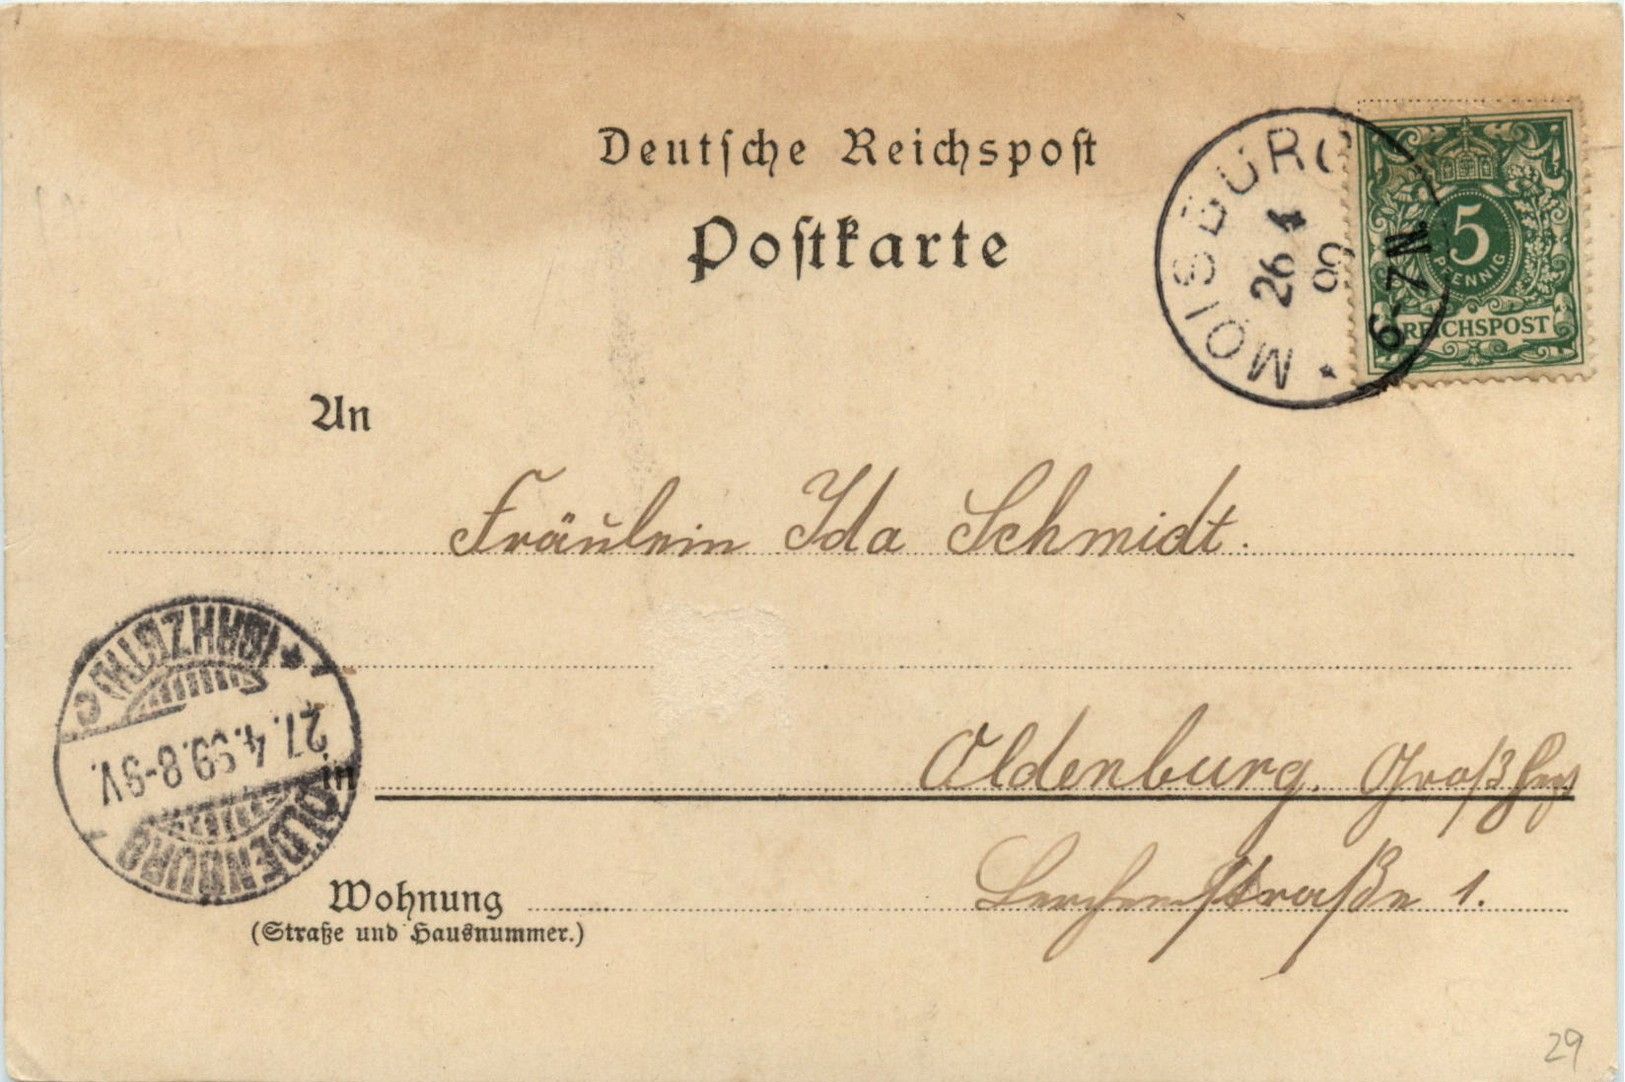 Deutsche Reichspost
Postkarte
MOISBURG
26 4
99
6-7N
5
PFENNIG
REICHSPOST
An
Fräulein Ida Schmidt.
Oldenburg. Großherz
in
Lerchenstraße 1.
Wohnung
(Straße und Hausnummer.)
OLDENBURG
(GRHZGTH)
27.4.99.8-9V.
c
29